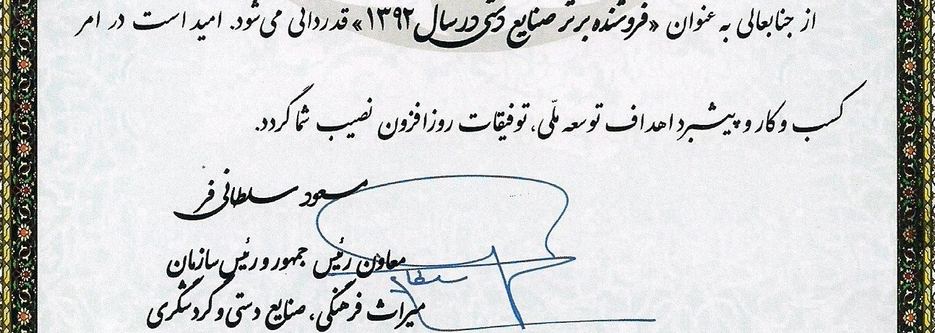 از جنابعالی به عنوان «فروشنده برتر صنایع دستی در سال ۱۳۹۲» قدردانی می‌شود. امید است در امر
کسب و کار و پیشبرد اهداف توسعه ملّی، توفیقات روزافزون نصیب شما گردد.
مسعود سلطانی فر
معاون رئیس جمهور و رئیس سازمان
میراث فرهنگی، صنایع دستی و گردشگری